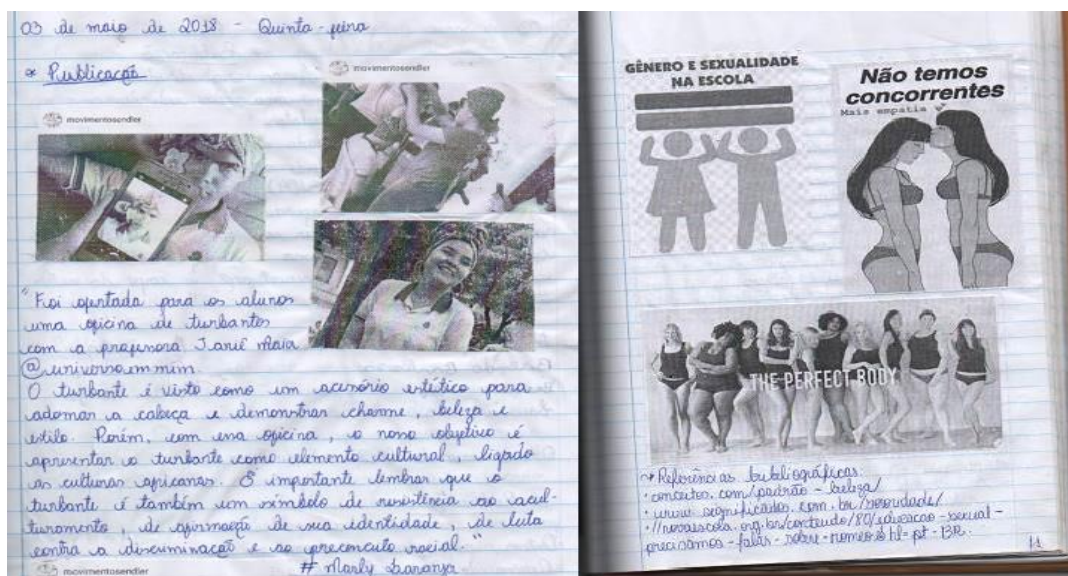 03 de maio de 2018 - Quinta-feira
* Publicação
movimentosendler
movimentosendler
"Foi ofertada para os alunos
uma oficina de turbantes
com a professora Maia
@universoemmim
O turbante é visto como um acessório estético para
adornar a cabeça e demonstrar charme, beleza e
estilo. Porém, com essa oficina, o nosso objetivo é
apresentar o turbante como elemento cultural, ligado
as culturas africanas. É importante lembrar que o
turbante é também um símbolo de resistência ao acul-
turamento, de afirmação de sua identidade, de luta
contra a discriminação e ao preconceito racial."
# Marly Saranja
movimentosendler
GÊNERO E SEXUALIDADE
NA ESCOLA
Não temos
concorrentes
Mais empatia
THE PERFECT BODY
Referências bubliográficas.
• conceitos.com/padrão-beleza/
• www.significados.com.br/sexualidade/
• //novaescola.org.br/conteudo/80/educacao-sexual-
precisamos-falar-sobre-romeo hl=pt-BR.